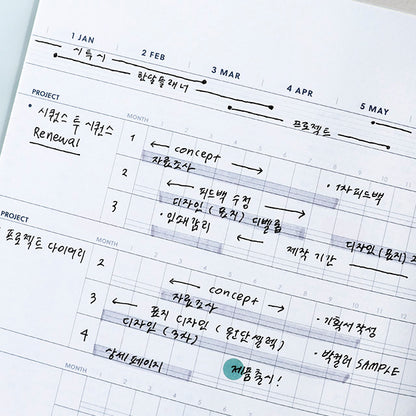 1 JAN
2 FEB
3 MAR
4 APR
5 MAY
시투시
한달플래너
프로젝트
PROJECT
MONTH
1 2 3 4 5 6 7 8 9 10
• 시퀀스 투 시퀀스
Renewal
1
concept
자료조사
• 1차피드백
2
피드백 수정
디자인 (표지) 디벨롭
3
• 인쇄감리
제작 기간
디자인 (표지)
PROJECT
MONTH
• 프로젝트 다이어리
2
concept
자료조사
• 기획서 작성
3
표지 디자인 (원단셀렉)
디자인 (3차)
• 박컬러 SAMPLE
4
상세페이지
제품출시!